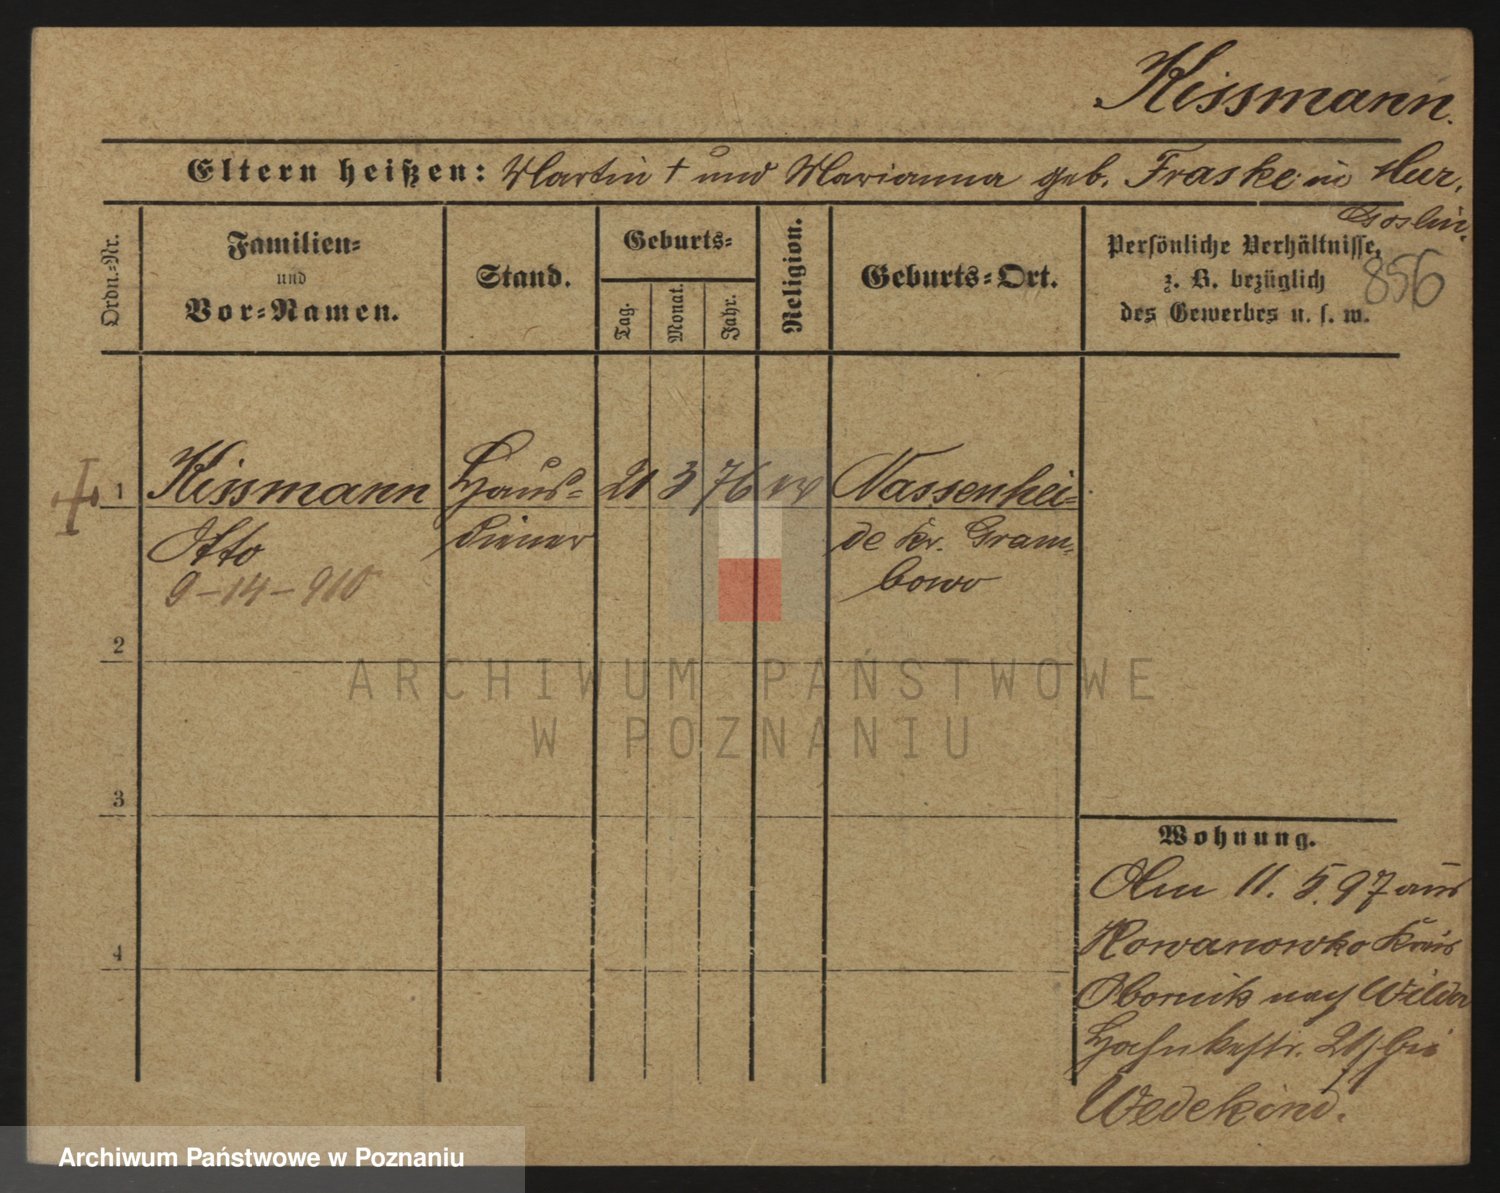 Kissmann.
Eltern heißen: Martin † und Marianna geb. Fraske in Mur.
Goslin.
Ordn.=Nr.
Familien=
und
Vor=Namen.
Stand.
Geburts=
Tag.
Monat.
Jahr.
Religion.
Geburts=Ort.
Persönliche Verhältnisse,
z. B. bezüglich
des Gewerbes u. s. w.
856
1 Kissmann Haus= 21 3 76 Nassenhei=
Otto diener de Kr. Gram=
9-14-910 bowo
2
3
4
Wohnung.
Am 11. 5. 97 aus
Kowanowko Kreis
Obornik nach Wilda
21/ bei
Wedekind.
ARCHIWUM PAŃSTWOWE
W POZNANIU
Archiwum Państwowe w Poznaniu